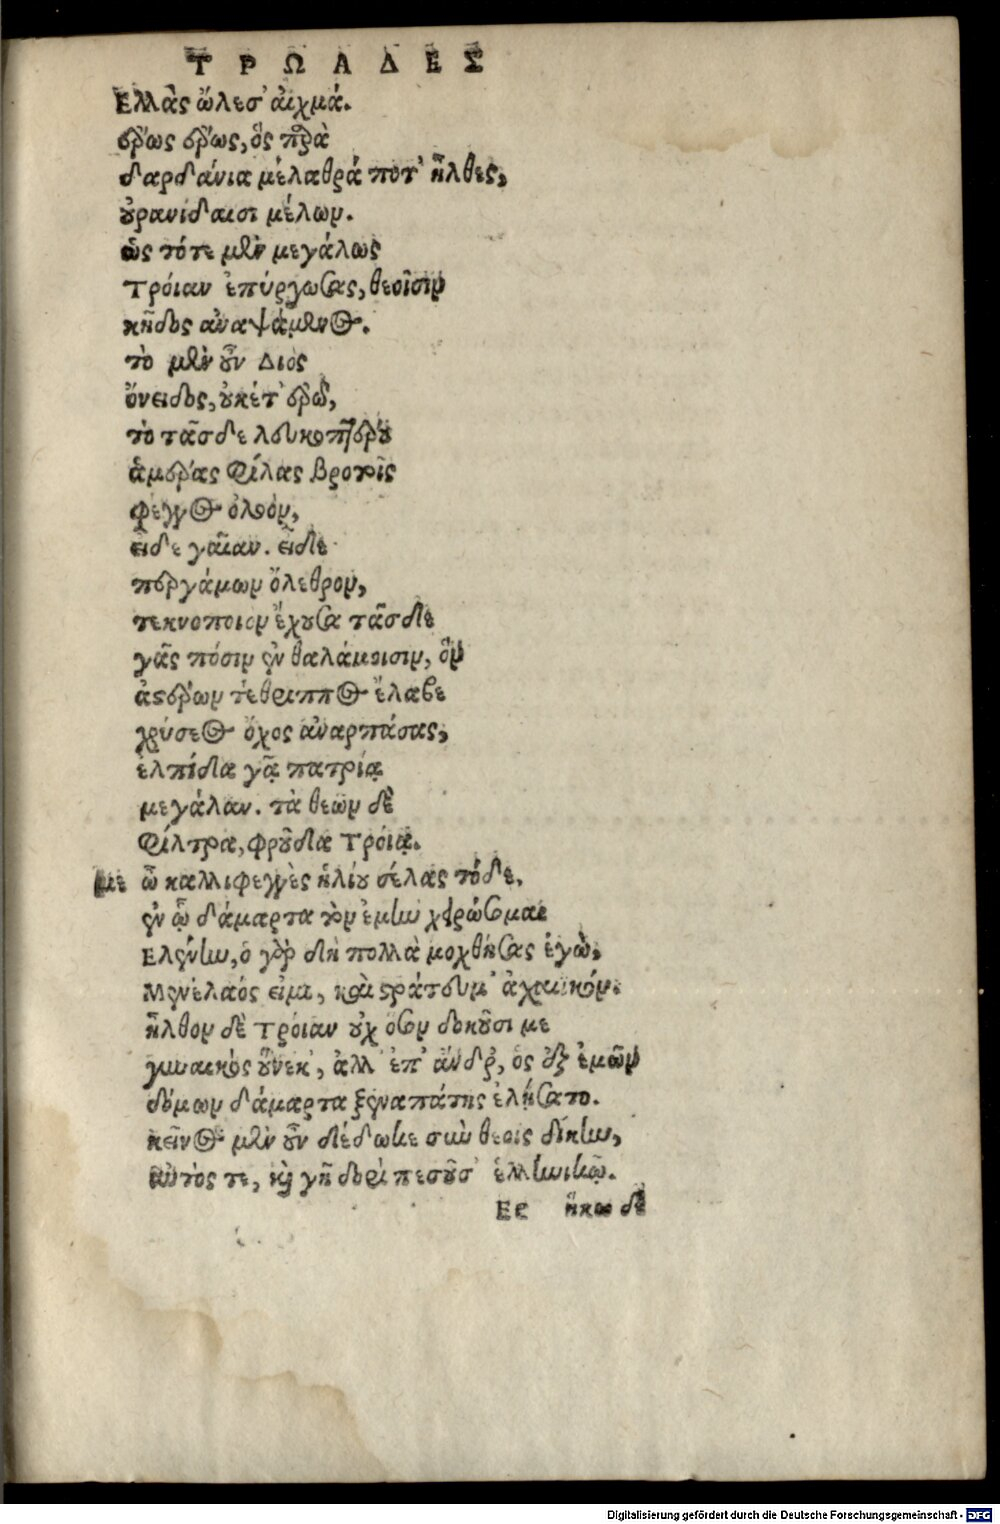 ΤΡΩΑΔΕΣ
Ελλὰς ὤλεσ' αἰχμά.
ἔρως ἔρως, ὃς παρὰ
δαρδάνια μέλαθρά ποτ' ἦλθες,
οὐρανίδαισι μέλων.
ὡς τότε μὲν μεγάλως
Τρόιαν ἐπύργωσας, θεοῖσιν
κῆδος ἀναψάμενος.
τὸ μὲν οὖν Διὸς
ὄνειδος, οὐκέτ' ἐρῶ,
τὸ τᾶσδε λευκοπτέρου
ἁμέρας φίλας βροτοῖς
φέγγος ὀλοὸν,
εἶδε γαῖαν. εἶδε
περγάμων ὄλεθρον,
τεκνοποιὸν ἔχουσα τᾶσδε
γᾶς πόσιν ἐν θαλάμοισιν, ὃν
ἀστέρων τέθριππος ἔλαβε
χρύσεος ὄχος ἀναρπάσας,
ἐλπίδα γᾷ πατρίᾳ
μεγάλαν. τὰ θεῶν δὲ
φίλτρα, φροῦδα Τρόιᾳ.
με ὦ καλλιφεγγὲς ἡλίου σέλας τόδε,
ἐν ᾧ δάμαρτα τὴν ἐμὴν χειρώσομαι
Ελένην, ὁ γὰρ δὴ πολλὰ μοχθήσας ἐγὼ,
Μενέλαός εἰμι, καὶ στράτευμ' ἀχαιικόν.
ἦλθον δὲ Τρόιαν οὐχ ὅσον δοκοῦσί με
γυναικὸς οὕνεκ', ἀλλ' ἐπ' ἄνδρ', ὃς ἐξ ἐμῶν
δόμων δάμαρτα ξεναπάτης ἐλήσατο.
κεῖνος μὲν οὖν δέδωκε σὺν θεοῖς δίκην,
αὐτός τε, καὶ γῆ δορὶ πεσοῦσ' ἑλληνικῷ.
Εε ἥκω δὲ
Digitalisierung gefördert durch die Deutsche Forschungsgemeinschaft - DFG